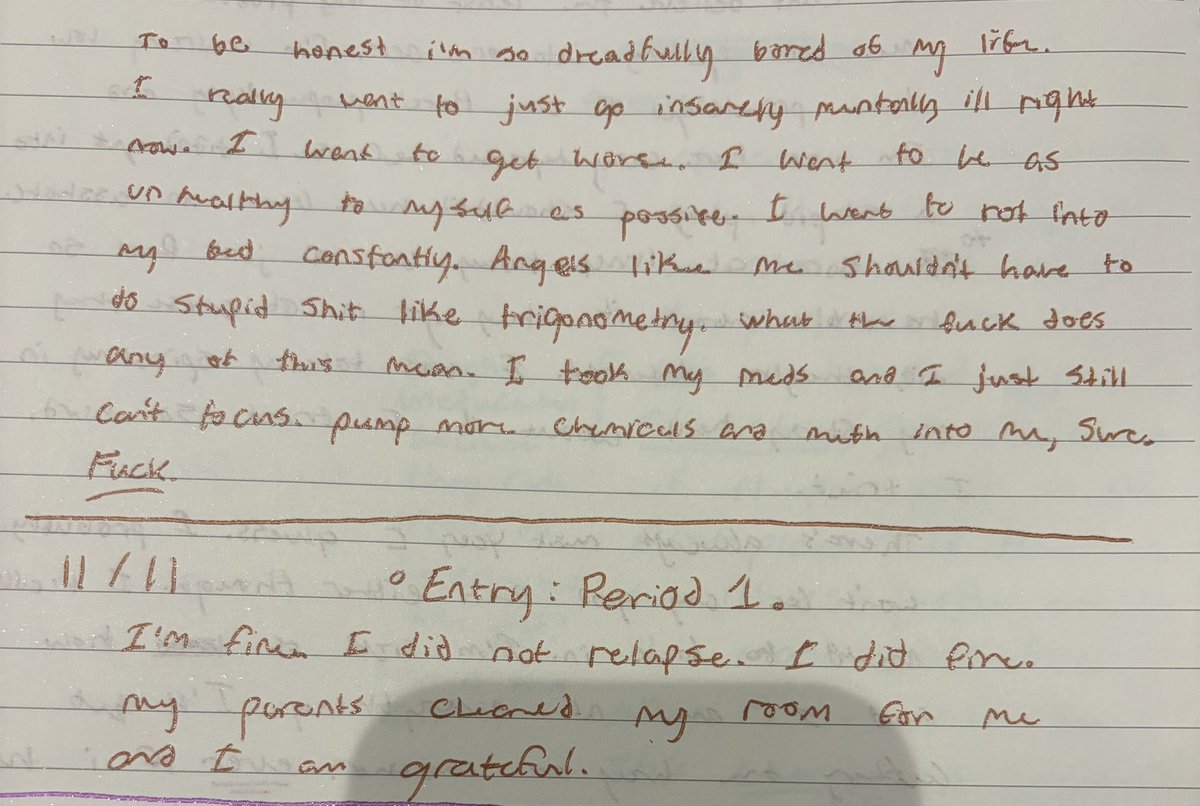 To be honest i'm so dreadfully bored of my life.
I really want to just go insanely mentally ill right
now. I want to get worse. I want to be as
unhealthy to myself as possire. I want to rot into
my bed constantly. Angels like me shouldn't have to
do stupid shit like trigonometry. what the fuck does
any of this mean. I took my meds and I just still
can't focus. pump more chemicals and meth into me, sure.
Fuck.
11/11 ° Entry: Period 1.
I'm fine. I did not relapse. I did fine.
my parents cleaned my room for me
and I am grateful.